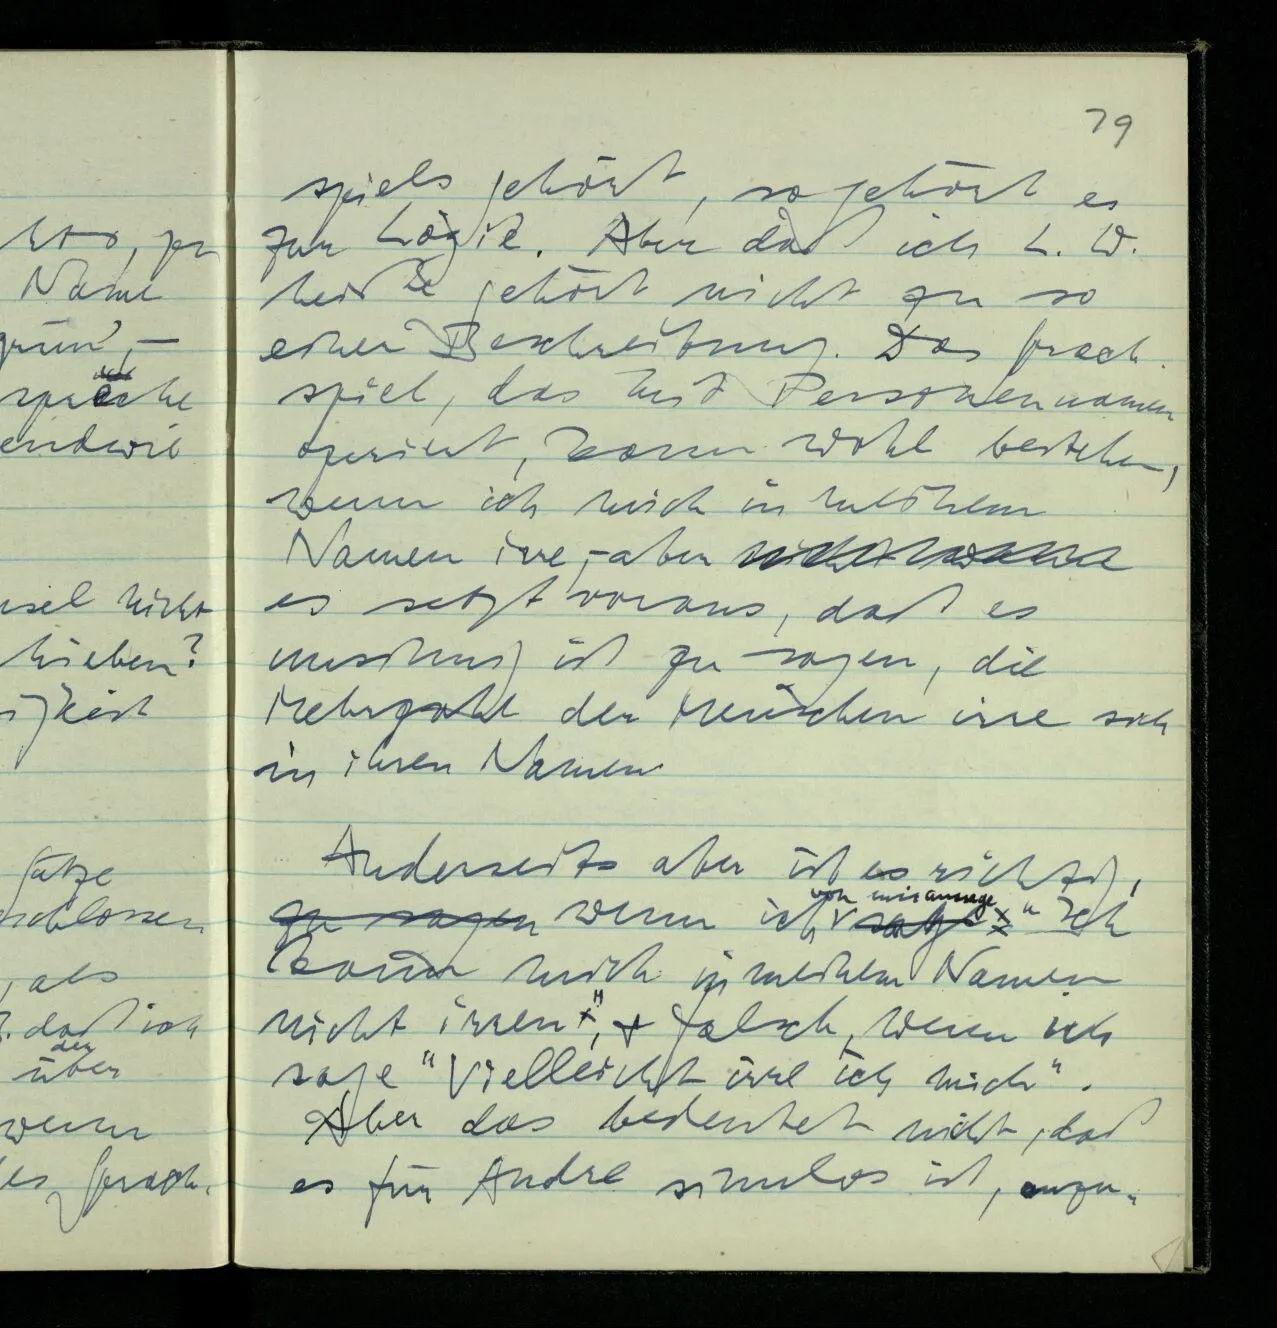 79
spiels gehört, so gehört es
zur Logik. Aber daß ich L. W.
heiße gehört nicht zu so
einer Beschreibung. Das Sprach
spiel, das mit Personennamen
operiert, kann wohl bestehen,
wenn ich mich in meinem
Namen irre, – aber
es setzt voraus, daß es
unsinnig ist zu sagen, die
Mehrzahl der Menschen irre sich
in ihren Namen
Anderseits aber ist es richtig,
zu sagen wenn ich von mir aussage "Ich
kann mich in meinem Namen
nicht irren", + falsch, wenn ich
sage "Vielleicht irre ich mich".
Aber das bedeutet nicht, daß
es für Andre sinnlos ist, anzu-
Name
grün', –
sprache
endwie
nicht
hieben?
igkeit
Sätze
schlossen
, als
daß ich
der
über
wenn
es Sprach-